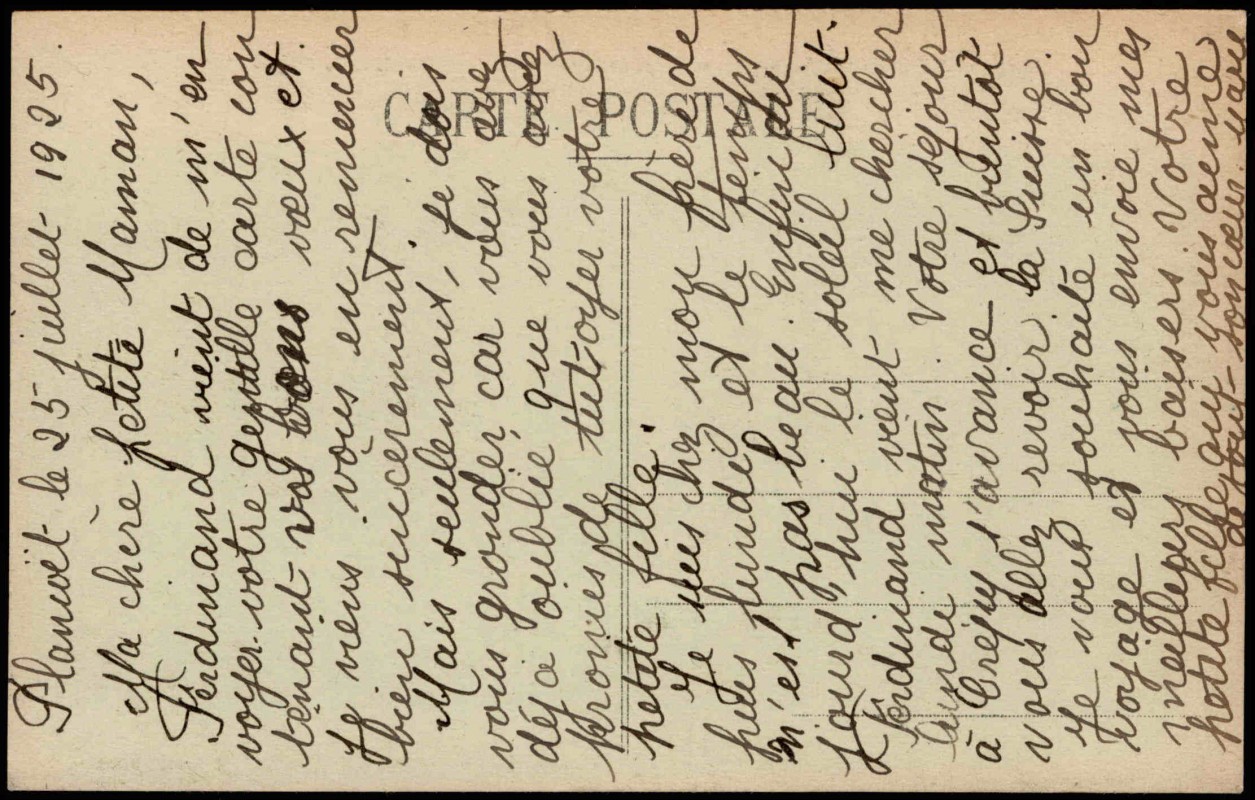 CARTE POSTALE
le 25 juillet 1925.
Ma chère petite Maman,
Ferdinand vient de m'en
voyer votre gentille carte con
tenant vos bons vœux et
je viens vous en remercier
bien sincèrement.
Mais seulement, je dois
vous gronder, car vous avez
déjà oublié que vous avez
promis de tutoyer votre
petite fille.
Je suis chez mon père de
puis lundi et le temps
n'est pas beau. Enfin au
jourd'hui le soleil luit.
Ferdinand vient me chercher
lundi matin. Votre séjour
à s'avance et bientôt
vous allez revoir la Suisse.
Je vous souhaite un bon
voyage et vous envoie mes
meilleurs baisers. Votre
petite fille qui vous aime
de tout son cœur.